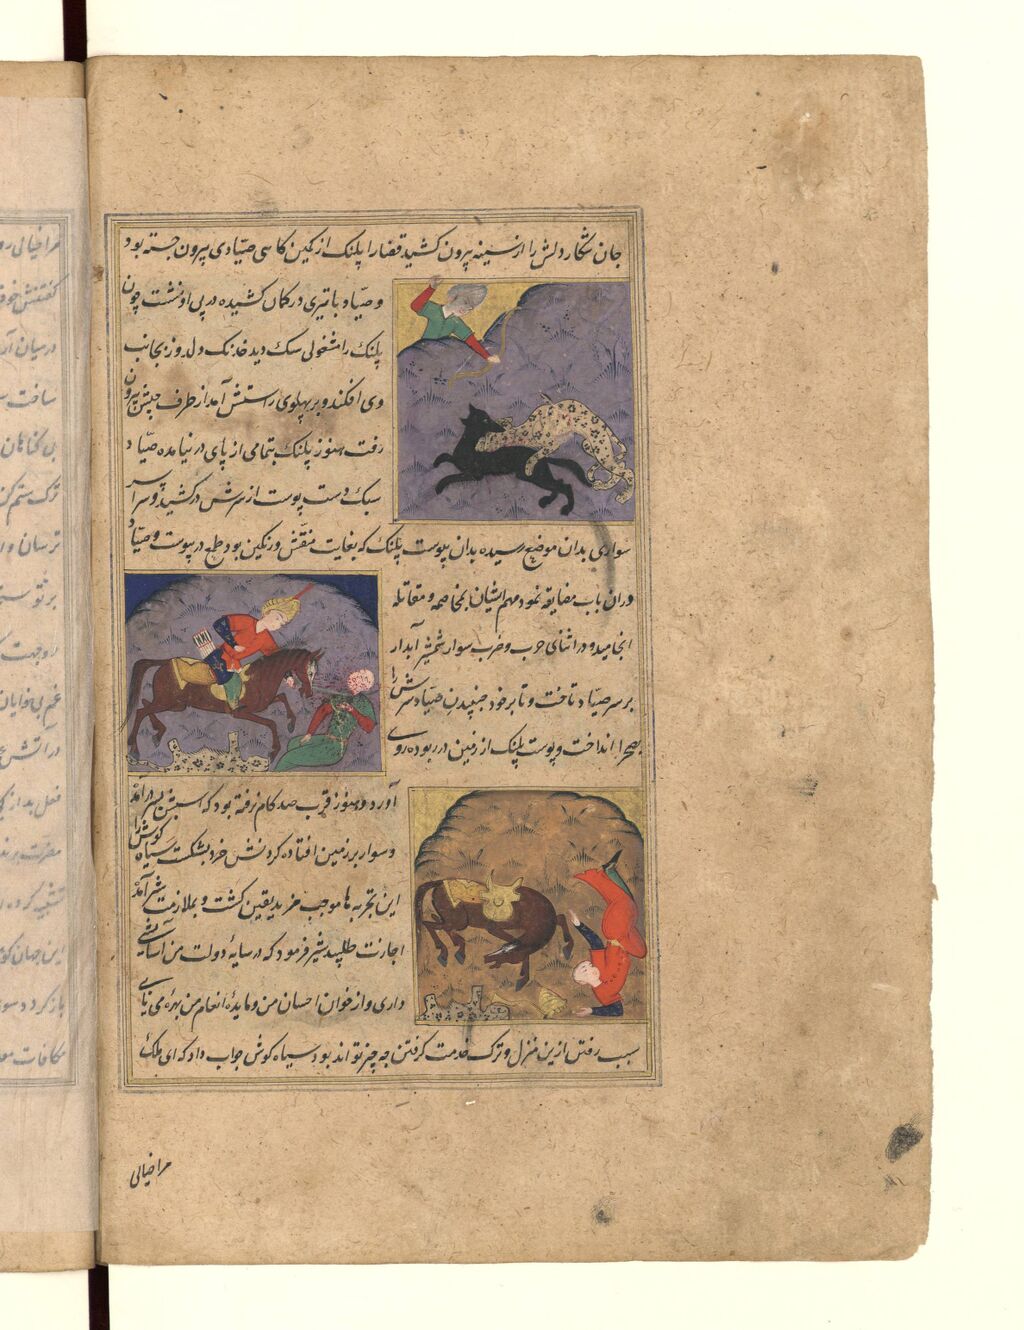 جان شکار دلش را از سینه بیرون کشید قضا را پلنک از کمین کاهی صیادی بیرون جسته بود
و صیاد با تیری در کمان کشیده در پی او نشست چون
پلنک را مشغولی سک دید خدنک دلدوز بجانب
وی افکند و بر پهلوی راستش آمد از طرف چپش بیرون
رفت هنوز پلنک بتمامی از پای در نیامده صیاد
سبک دست پوست از سرش درکشید و سراسر
سواری بدان موضع رسیده بدان پوست پلنک که بغایت منقش و رنکین بود طمع در پیوست و صیاد
دران باب مضایقه نمود مهم ایشان بمخاصمه و مقاتله
انجامید و در اثنای حرب و ضرب سوار شمشیر آبدار
بر سر صیاد تاخت و تا بر خود جنبیدن صیاد سرش را
بصحرا انداخت و پوست پلنک از زمین در ربوده روی
آورد و هنوز قرب صد کام نرفته بود که اسبش بسر در آمد
و سوار بر زمین افتاده کردنش خرد بشکست سیاه کوش را
این تجربه ها موجب مزید یقین کشت و بملازمت شیر آمد
اجازت طلبید شیر فرمود که در سایهٔ دولت من آسایشی
داری و از خوان احسان من و مایدهٔ انعام من بهره می یابی
سبب رفتن ازین منزل و ترک خدمت کرفتن چه چیز تواند بود سیاه کوش جواب داد که ای ملک
مرا خیالی
مرا خیالی
در میان
ساخت
بی کناهان
ترسان و
غم بی نوایان
در آتش
این جهان کوه
مکافات